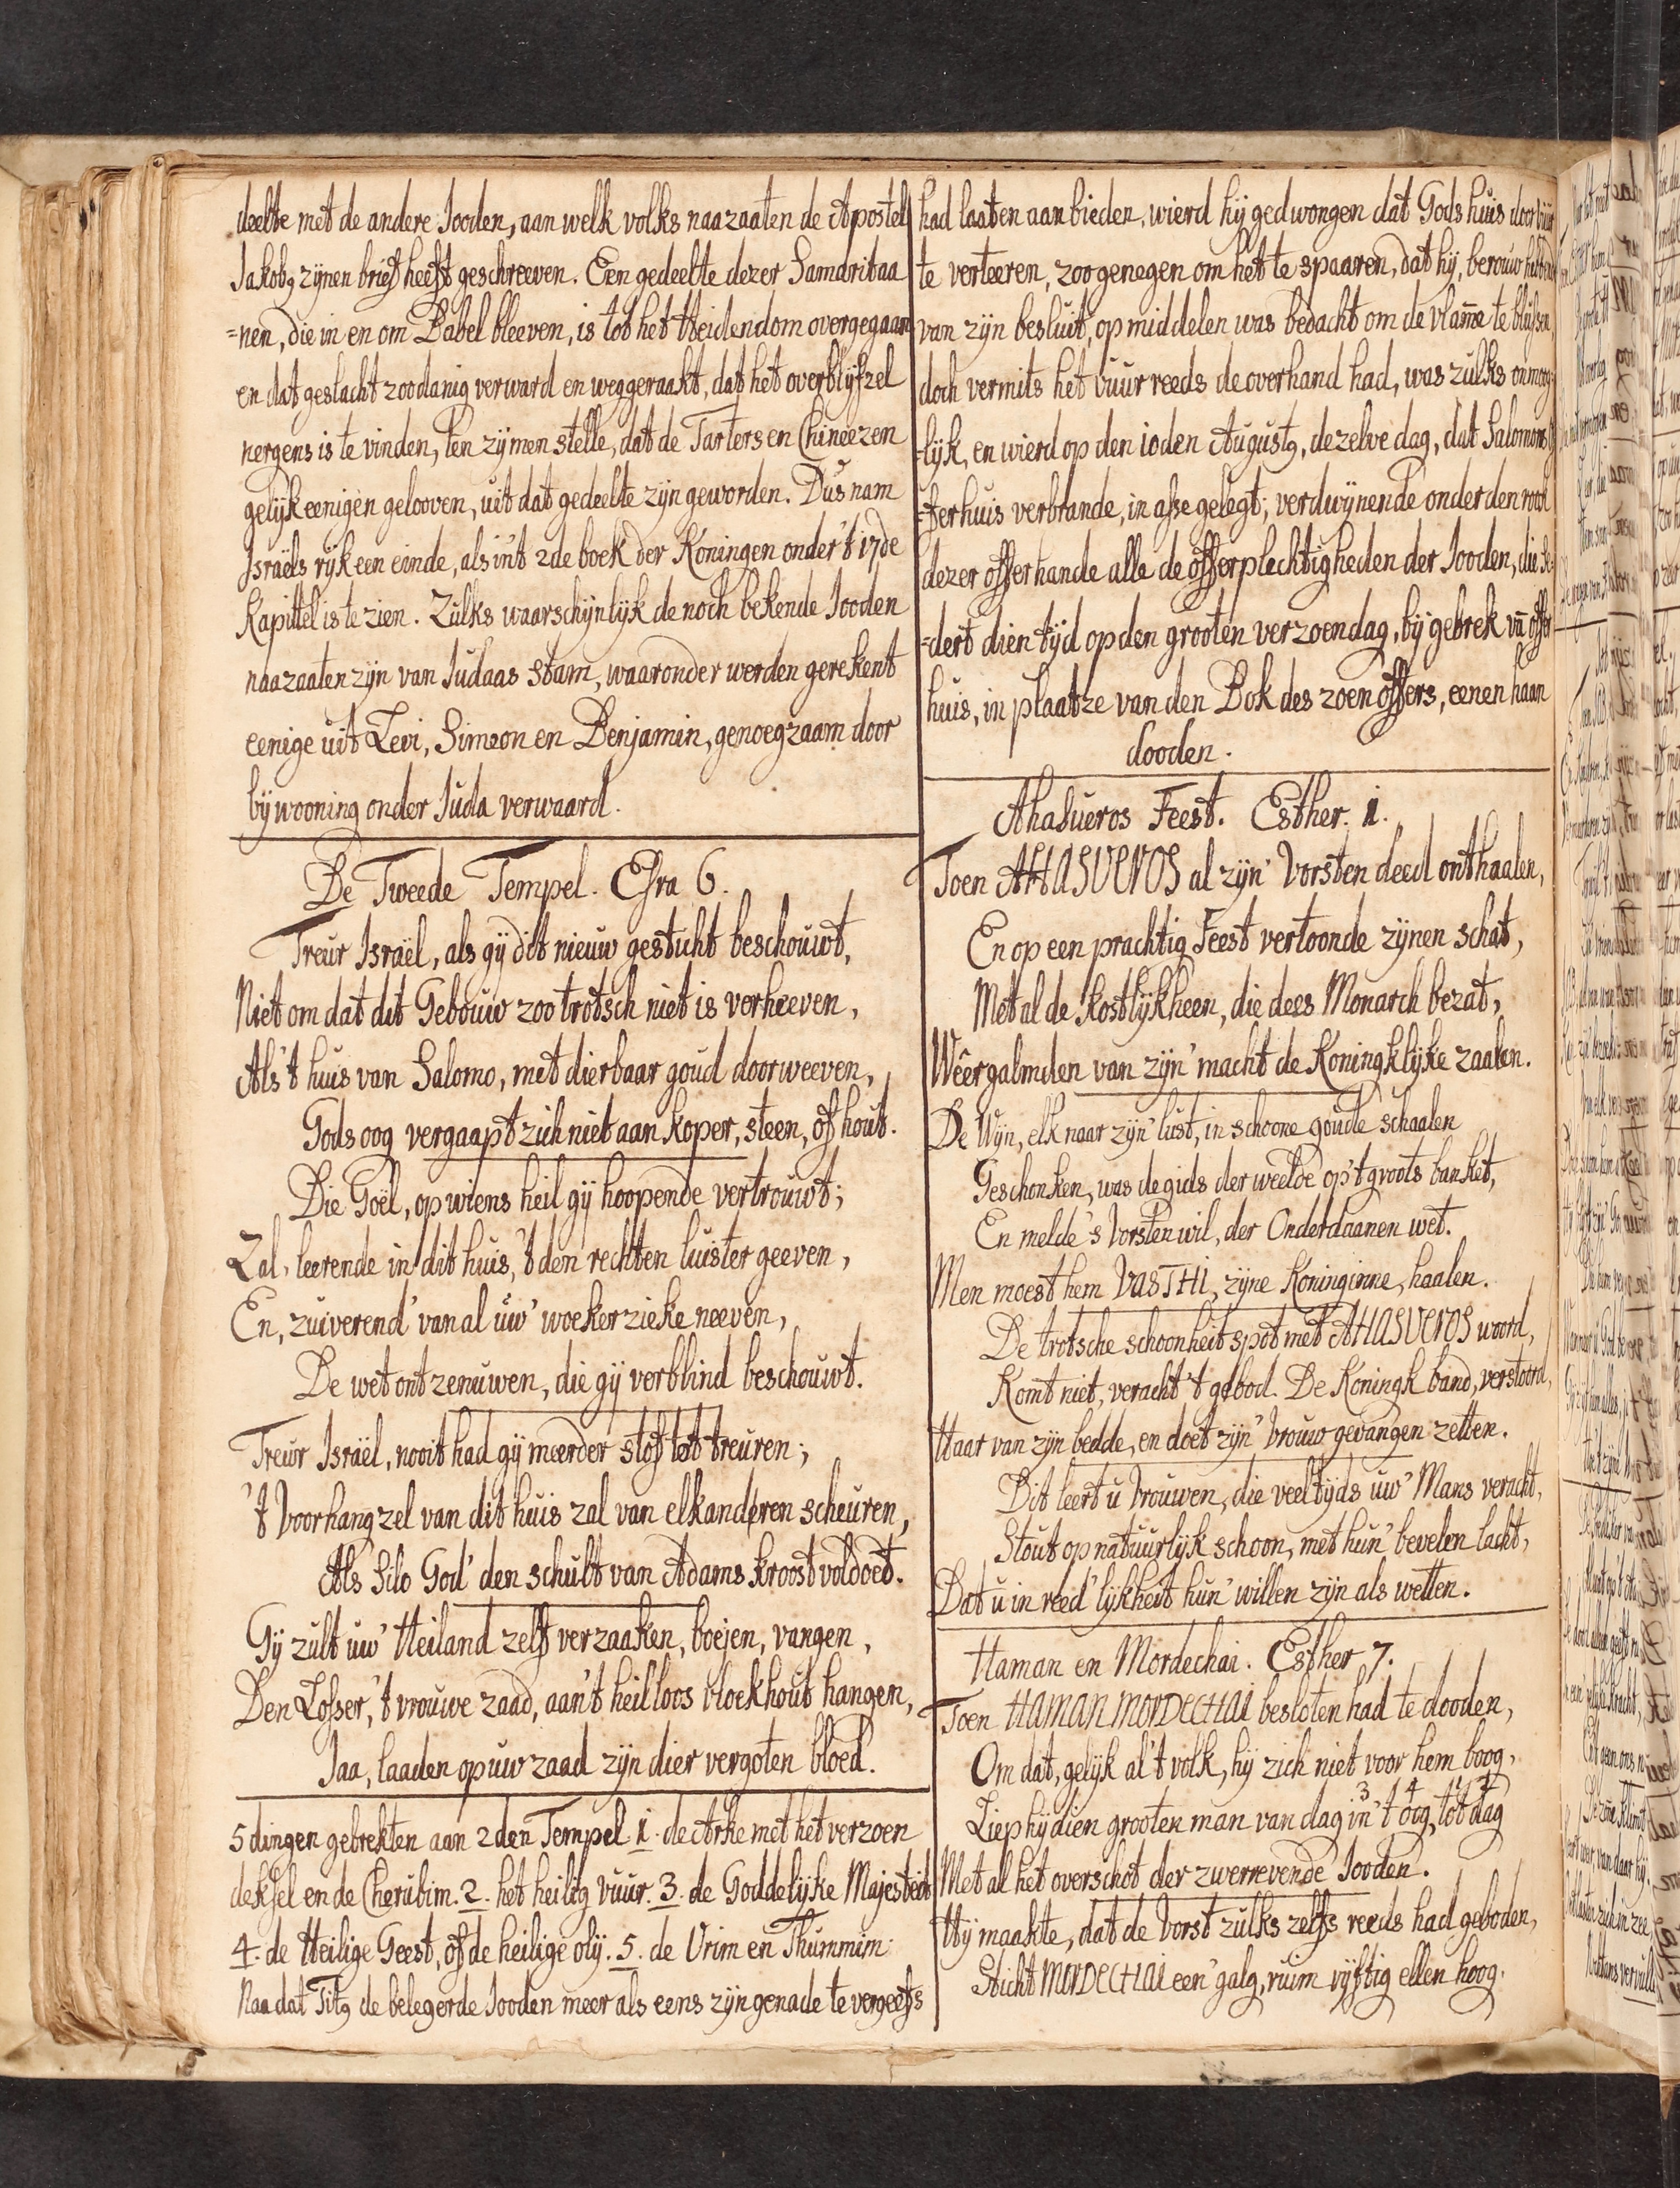 deelte met de andere Jooden, aan welk volks naazaaten de Apostel
Jakobꝯ zijnen brief heeft geschreeven. Een gedeelte dezer Samaritaa
=nen, die in en om Babel bleeven, is tot het Heidendom overgegaan
en dat geslacht zoodanig verward en weggeraakt, dat het overblijfzel
nergens is te vinden, ten zij men stelle, dat de Tarters en Chineezen
gelijk eenigen gelooven, uit dat gedeelte zijn geworden. Dus nam
Israëls rijk een einde, als in't 2de boek der Koningen onder 't 17de
Kapittel is te zien. Zulks waarschijnlijk de noch bekende Jooden
naazaaten zijn van Judaas stam, waaronder werden gerekent
eenige uit Levi, Simeon en Benjamin, genoegzaam door
bijwooning onder Juda verwaard.
De Tweede Tempel. Esra 6.
Treur Israël, als gij dit nieuw gesticht beschouwt,
Niet om dat dit Gebouw zoo trotsch niet is verheeven,
Als 't huis van Salomo, met dierbaar goud doorweeven,
Gods oog vergaapt zich niet aan koper, steen, of hout.
Die Goël, op wiens heil gij hoopende vertrouwt;
Zal, leerende in dit huis, 't den rechten luister geeven,
En, zuiverend' van al uw' woekerzieke neeven,
De wet ontzenuwen, die gij verblind beschouwt.
Treur Israël, nooit had gij meerder stof tot treuren;
't Voorhangzel van dit huis zal van elkanderen scheuren,
Als Silo God' den schult van Adams kroost voldoet.
Gij zult uw' Heiland zelf verzaaken, boejen, vangen,
Den Losser, 't vrouwe zaad, aan't heilloos vloekhout hangen,
Jaa, laaden op uw zaad zijn dier vergoten bloed.
5 dingen gebrekten aan 2den Tempel 1. de Arke met het verzoen
deksel en de Cherubim. 2. het heilig vuur. 3. de Goddelijke Majesteit
4. de Heilige Geest, of de heilige olij. 5. de Urim en Thummim.
Naa dat Titꝯ de belegerde Jooden meer als eens zijn genade te vergeefs
had laaten aanbieden, wierd hij gedwongen dat Gods huis door vuur
te verteeren, zoo genegen om het te spaaren, dat hij, berouw hebbend
van zijn besluit, op middelen was bedacht om de vlam̄e te blussen,
doch vermits het vuur reeds de overhand had, was zulks onmog
=lijk, en wierd op den 10den Augustꝯ, dezelve dag, dat Salomons
=ferhuis verbrande, in asse gelegt; verdwijnende onder den rook
dezer offerhande alle de offerplechtigheden der Jooden, die se
=dert dien tijd op den grooten verzoendag, bij gebrek vā offer
huis, in plaatze van den Bok des zoenoffers, eenen haan
dooden.
Ahasueros Feest. Esther. 1.
Toen AHASUEROS al zijn' Vorsten deed onthaalen,
En op een prachtig Feest vertoonde zijnen schat,
Met al de kostlijkheen, die dees Monarch bezat,
Wêergalmden van zijn' macht de Koningklijke zaalen.
De Wijn, elk naar zijn' lust, in schoone goude schaalen
Geschonken, was de gids der weelde op't groots banket,
En melde 's Vorsten wil, der Onderdaanen wet.
Men moest hem VASTHI, zijne Koninginne, haalen.
De trotsche schoonheit spot met AHASUEROS woord,
Komt niet, veracht 't gebod. De Koningk band, verstoord,
Haar van zijn bedde, en doet zijn' Vrouw gevangen zetten.
Dit leert u Vrouwen, die veeltijds uw' Mans veracht,
Stout op natuurlijk schoon, met hun' bevelen lacht,
Dat u in reed'lijkheit hun' willen zijn als wetten.
Haman en Mordechai. Esther 7.
Toen HAMAN MORDECHAI besloten had te dooden,
Om dat, gelijk al 't volk, hij zich niet voor hem boog,
Liep hij dien grooten man van dag in 't oog, tot dag
Met al het overschot der zwerrevende Jooden.
Hij maakte, dat de Vorst zulks zelfs reeds had geboden,
Sticht MORDECHAI een' galg, ruim vijftig ellen hoog.